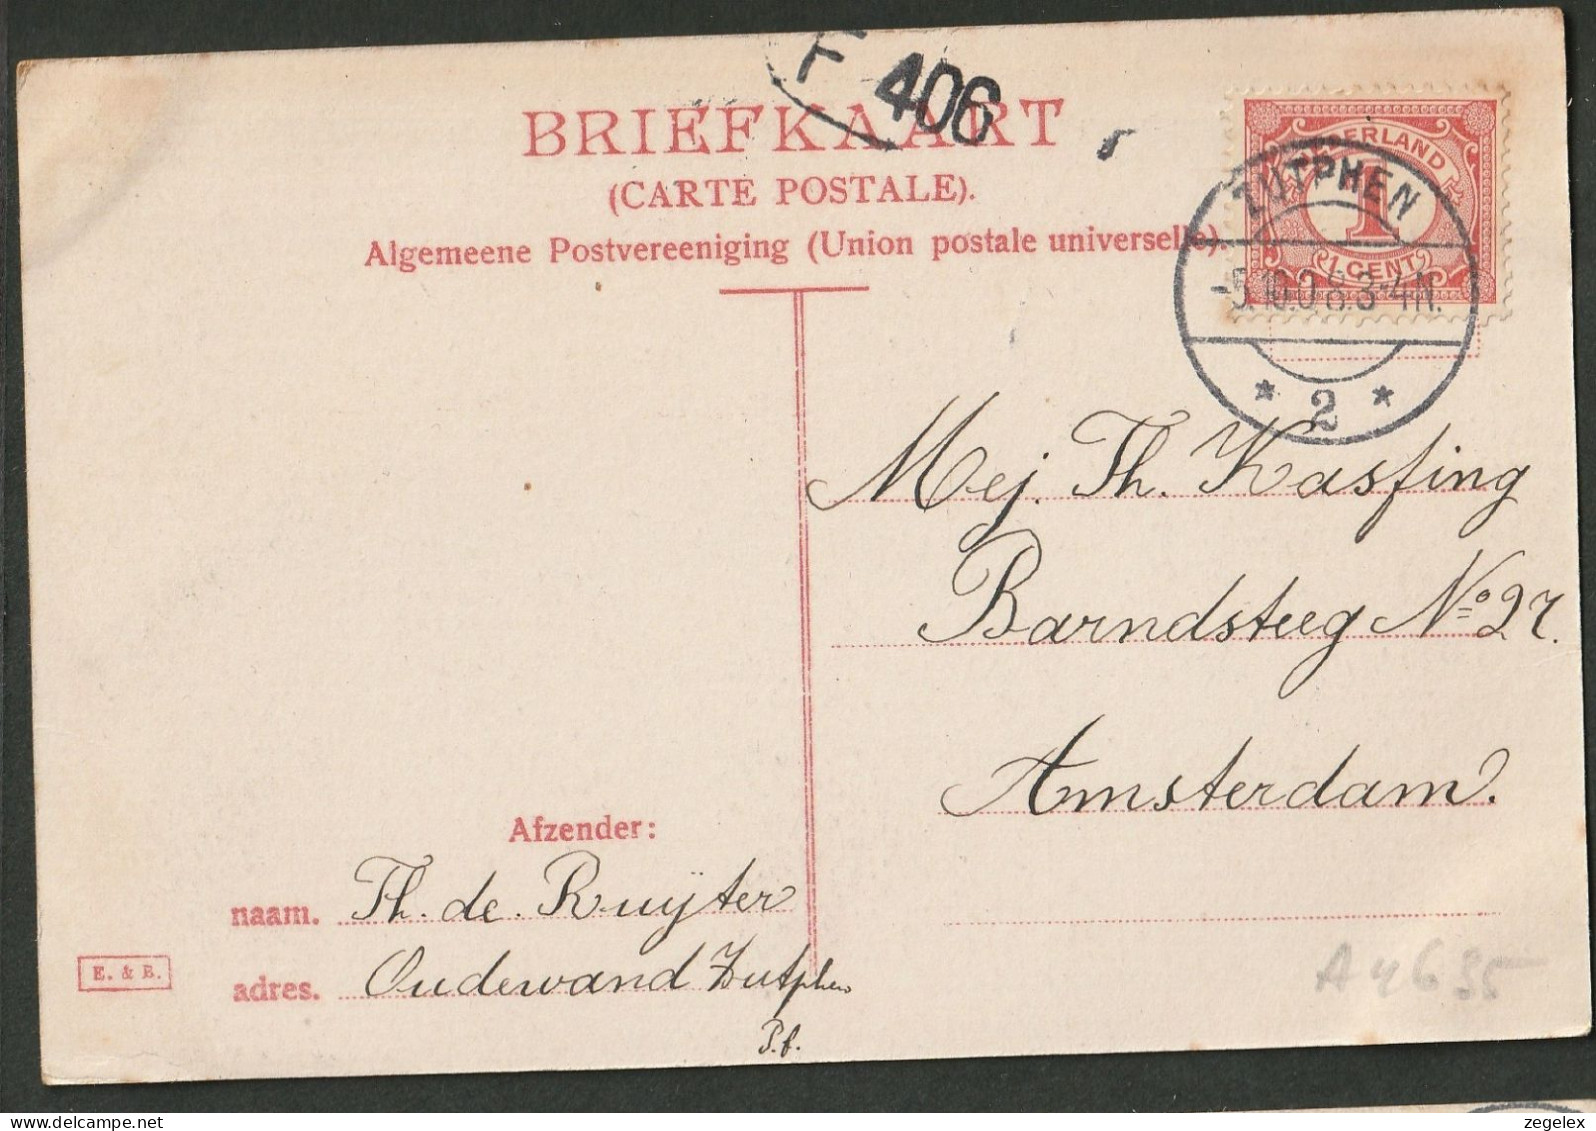 F 406
BRIEFKAART
(CARTE POSTALE).
Algemeene Postvereeniging (Union postale universelle).
NEDERLAND
1
1 CENT
ZUTPHEN
-5.10.08.3-4N.
* 2 *
Mej. Th. Kasfing
Barndsteeg No 27.
Amsterdam.
Afzender:
naam. Th. de Ruijter
adres. Oudewand Zutphen
P.f.
E. & B.
zegelex